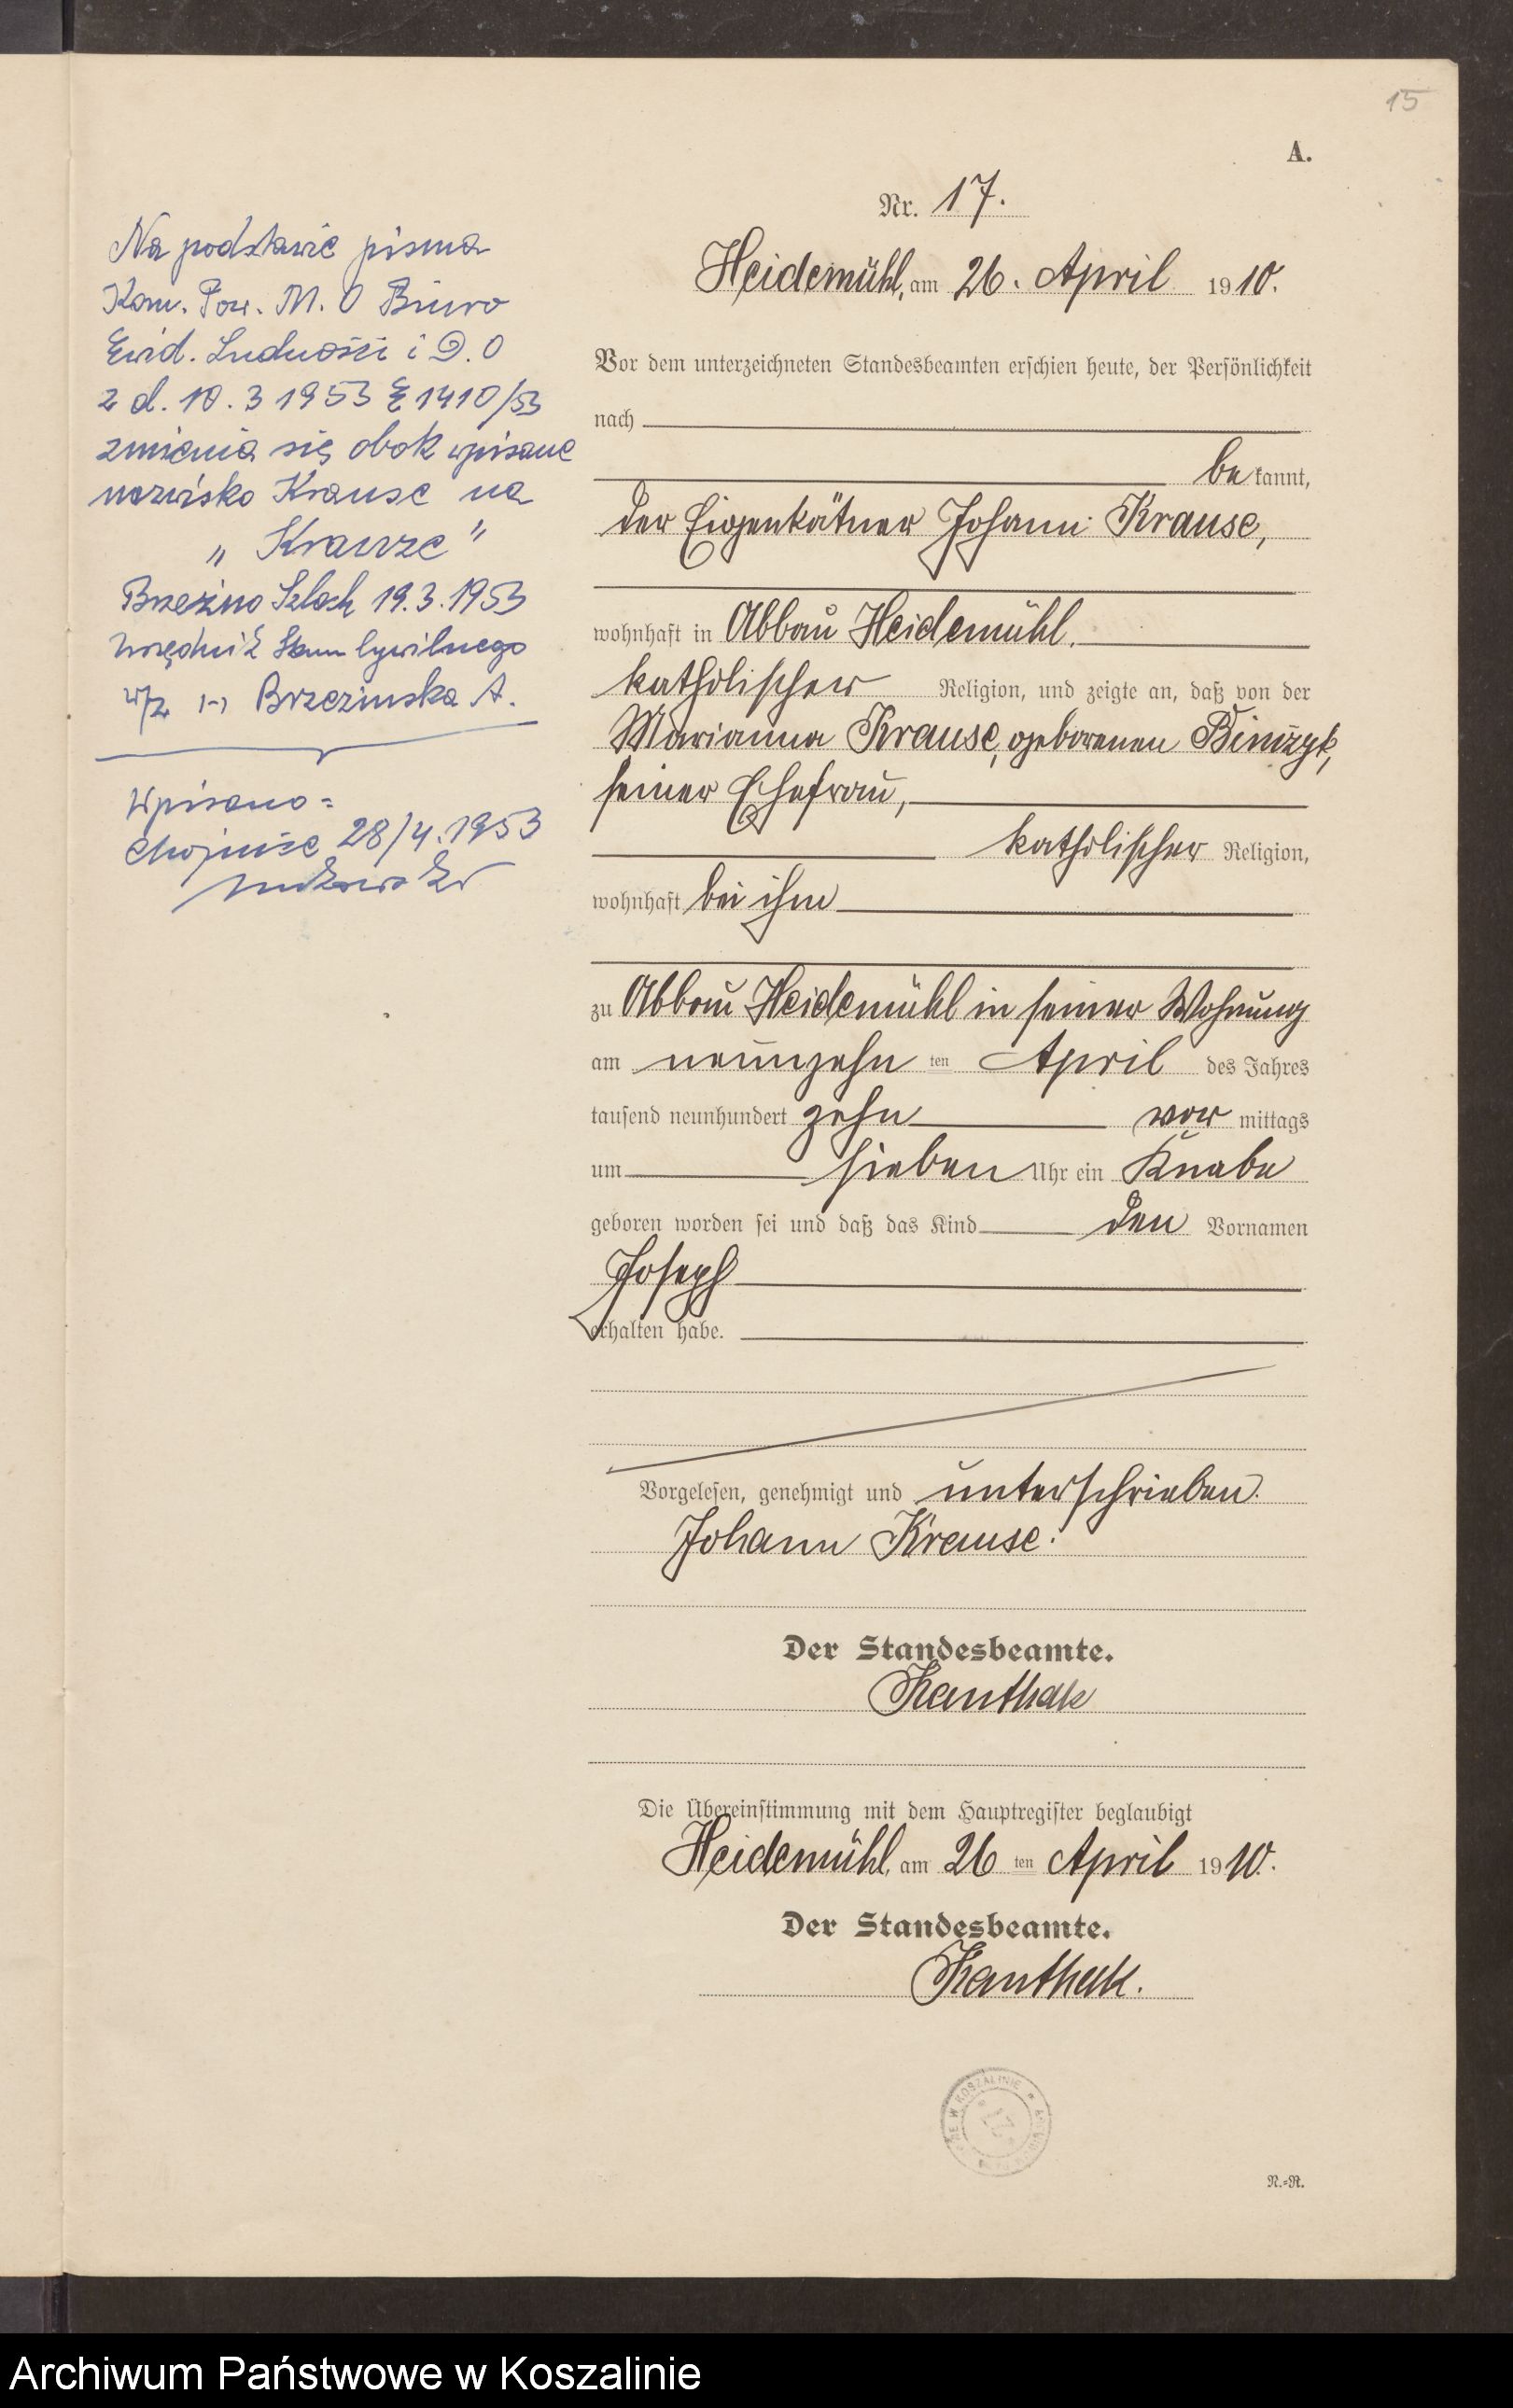 15
A.
Nr. 17.
Heidemühl, am 26. April 1910.
Vor dem unterzeichneten Standesbeamten erschien heute, der Persönlichkeit
nach
bekannt,
der Eigenkätner Johann Krause,
wohnhaft in Abbau Heidemühl.
katholischer Religion, und zeigte an, daß von der
Marianna Krause, geborenen Binczyk,
seiner Ehefrau,
katholischer Religion,
wohnhaft bei ihm
zu Abbau Heidemühl in seiner Wohnung
am neunzehnten April des Jahres
tausend neunhundert zehn vormittags
um sieben Uhr ein Knabe
geboren worden sei und daß das Kind den Vornamen
Joseph
erhalten habe.
Vorgelesen, genehmigt und unterschrieben.
Johann Krause.
Der Standesbeamte.
Kanthak
Die Übereinstimmung mit dem Hauptregister beglaubigt
Heidemühl, am 26ten April 1910.
Der Standesbeamte.
Kanthak.
N.=R.
Na podstawie pisma
Kom. Pow. M. O Biuro
Ewid. Ludności i D. O
z d. 10. 3 1953 1410/53
zmienia się obok wpisane
nazwisko Krause na
„Krauze"
Brzeźno Szlach 19.3.1953
Urzędnik Stanu Cywilnego
wz (-) Brzezinska A.
Wpisano =
Chojnice 28/4.1953
W KOSZALINIE
Archiwum Państwowe w Koszalinie